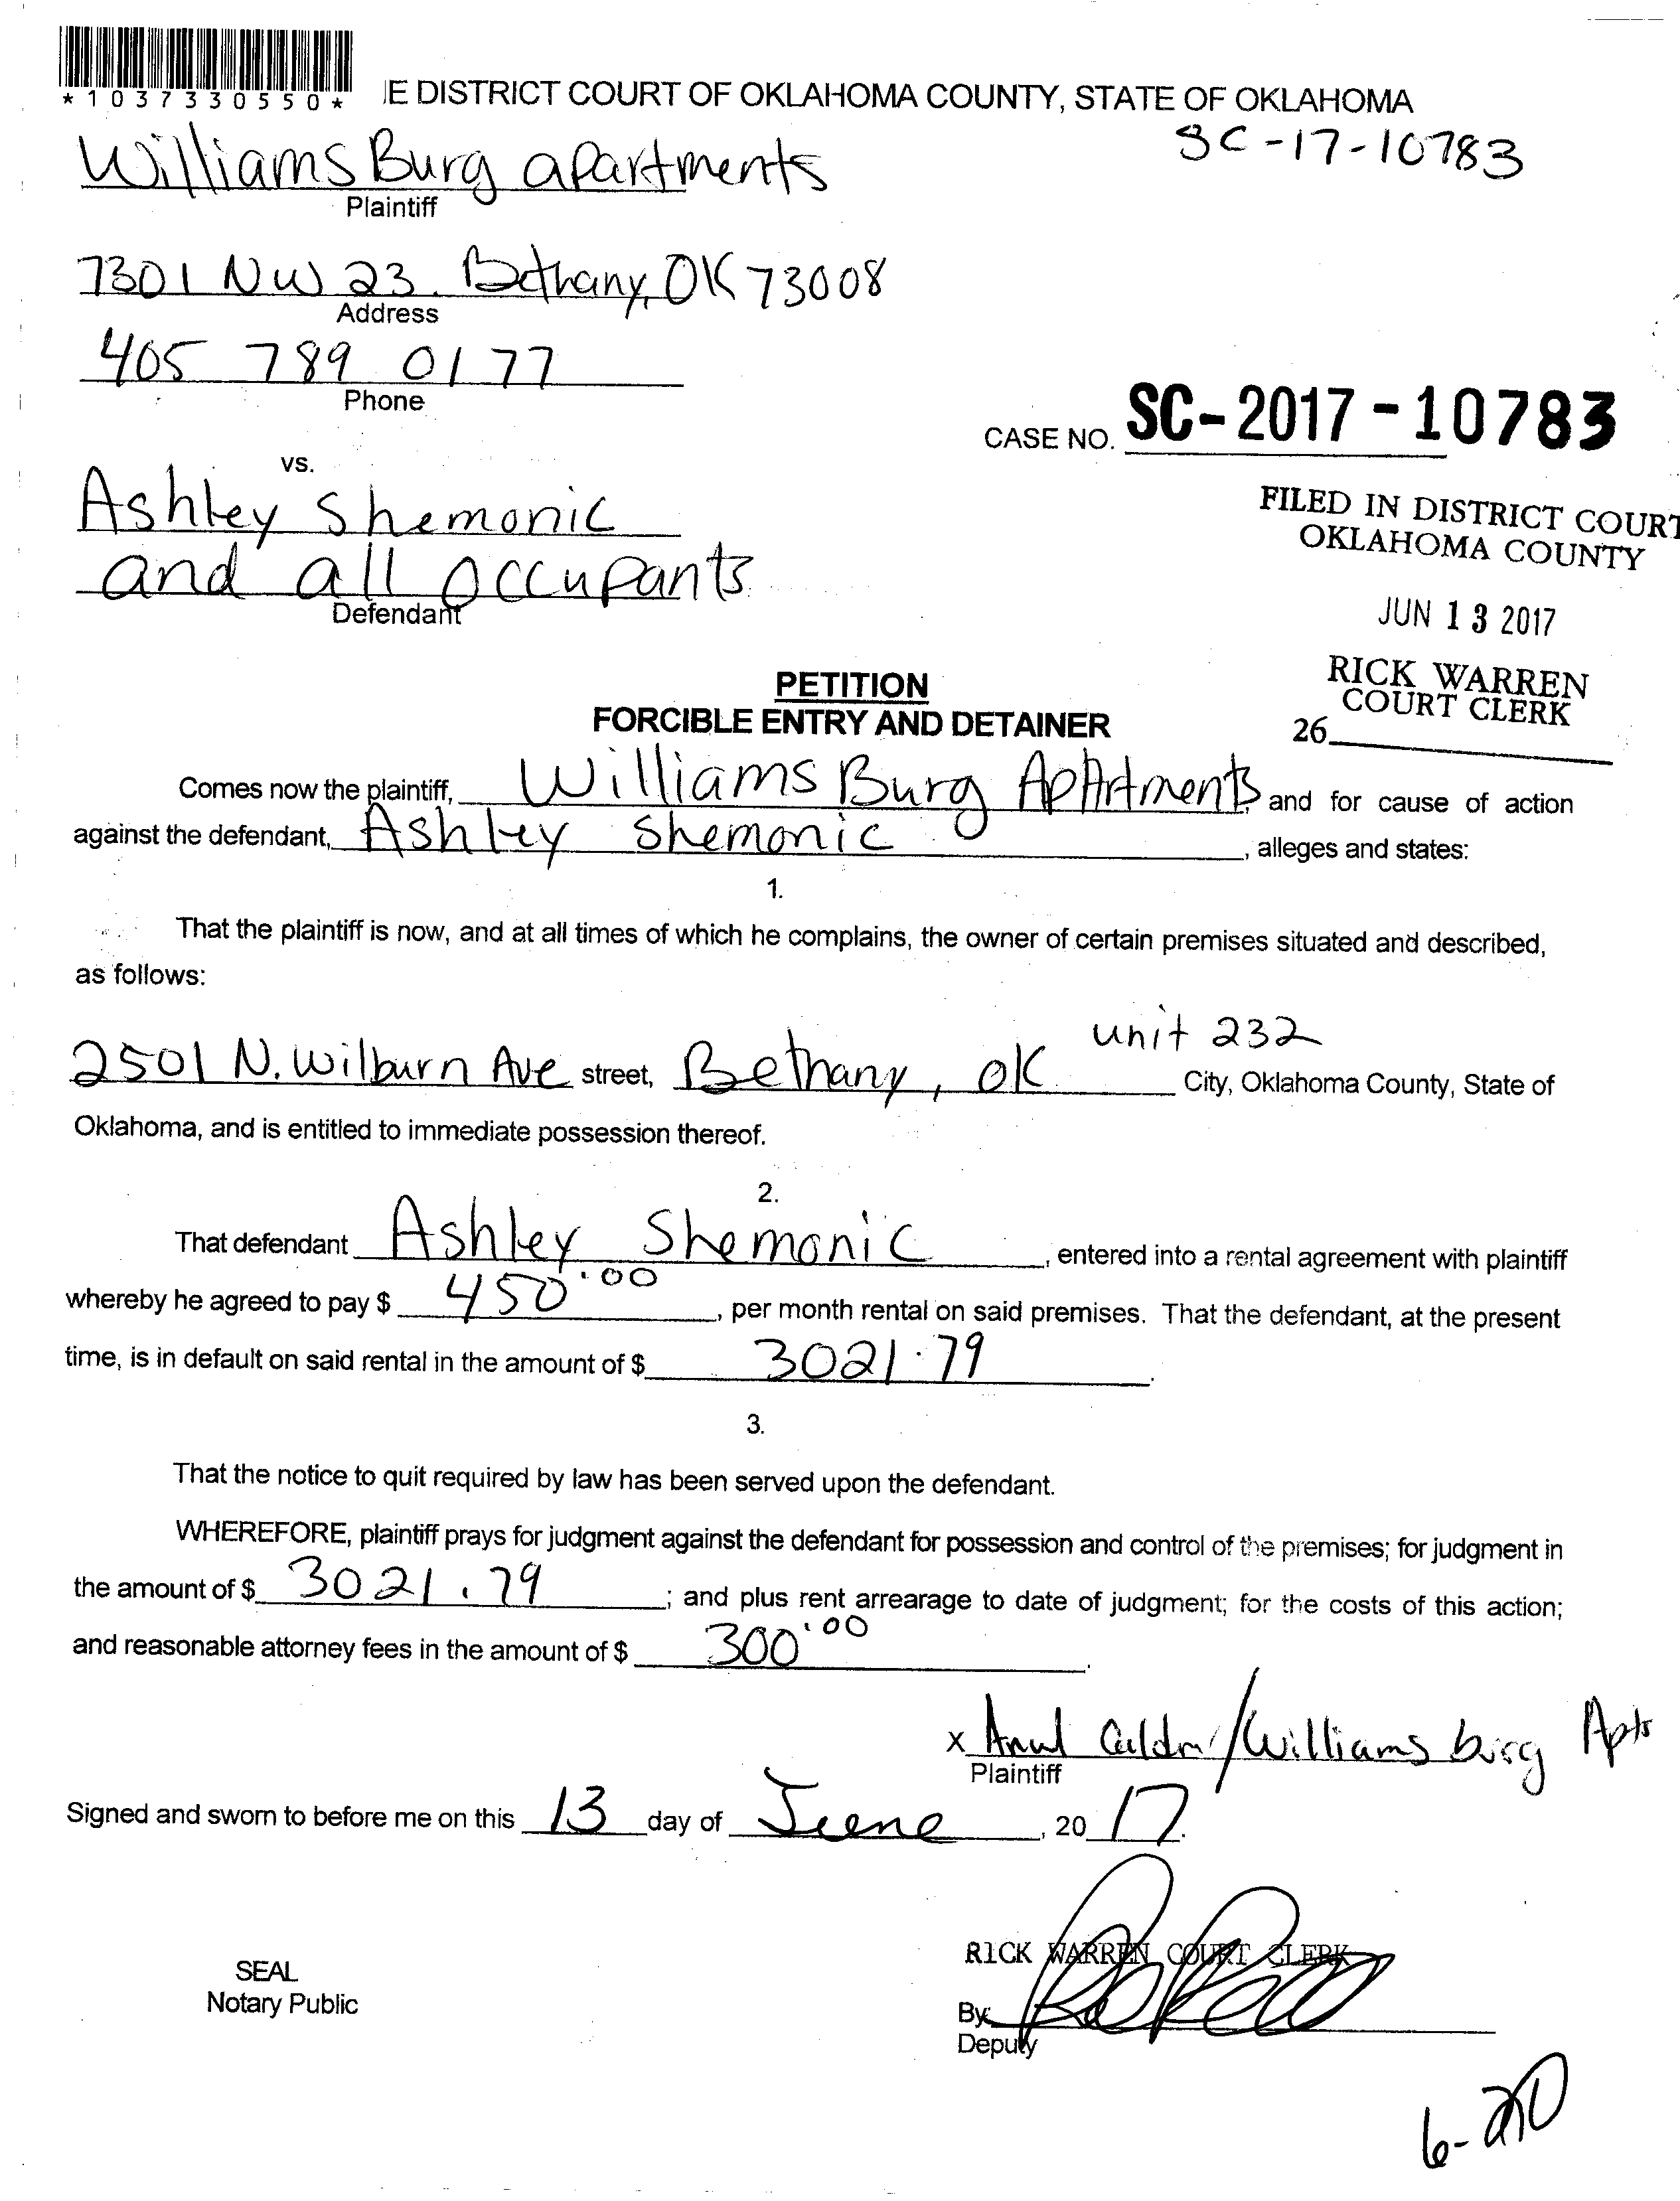 *1037330550*
E DISTRICT COURT OF OKLAHOMA COUNTY, STATE OF OKLAHOMA
SC-17-10783
Williams Burg apartments
Plaintiff
7301 NW 23. Bethany, OK 73008
Address
405 789 0177
Phone
CASE NO. SC-2017-10783
vs.
Ashley Shemonic
and all occupants
Defendant
FILED IN DISTRICT COURT
OKLAHOMA COUNTY
JUN 13 2017
RICK WARREN
COURT CLERK
26
PETITION
FORCIBLE ENTRY AND DETAINER
Comes now the plaintiff, Williams Burg Apartments, and for cause of action
against the defendant, Ashley Shemonic, alleges and states:
1.
That the plaintiff is now, and at all times of which he complains, the owner of certain premises situated and described,
as follows:
unit 232
2501 N. Wilburn Ave street, Bethany, OK City, Oklahoma County, State of
Oklahoma, and is entitled to immediate possession thereof.
2.
That defendant Ashley Shemonic, entered into a rental agreement with plaintiff
whereby he agreed to pay $ 450.00, per month rental on said premises. That the defendant, at the present
time, is in default on said rental in the amount of $ 3021.79.
3.
That the notice to quit required by law has been served upon the defendant.
WHEREFORE, plaintiff prays for judgment against the defendant for possession and control of the premises; for judgment in
the amount of $ 3021.79; and plus rent arrearage to date of judgment; for the costs of this action;
and reasonable attorney fees in the amount of $ 300.00.
x /Williams burg Apts
Plaintiff
Signed and sworn to before me on this 13 day of June, 2017.
RICK WARREN COURT CLERK
SEAL
Notary Public
By:
Deputy
6-20